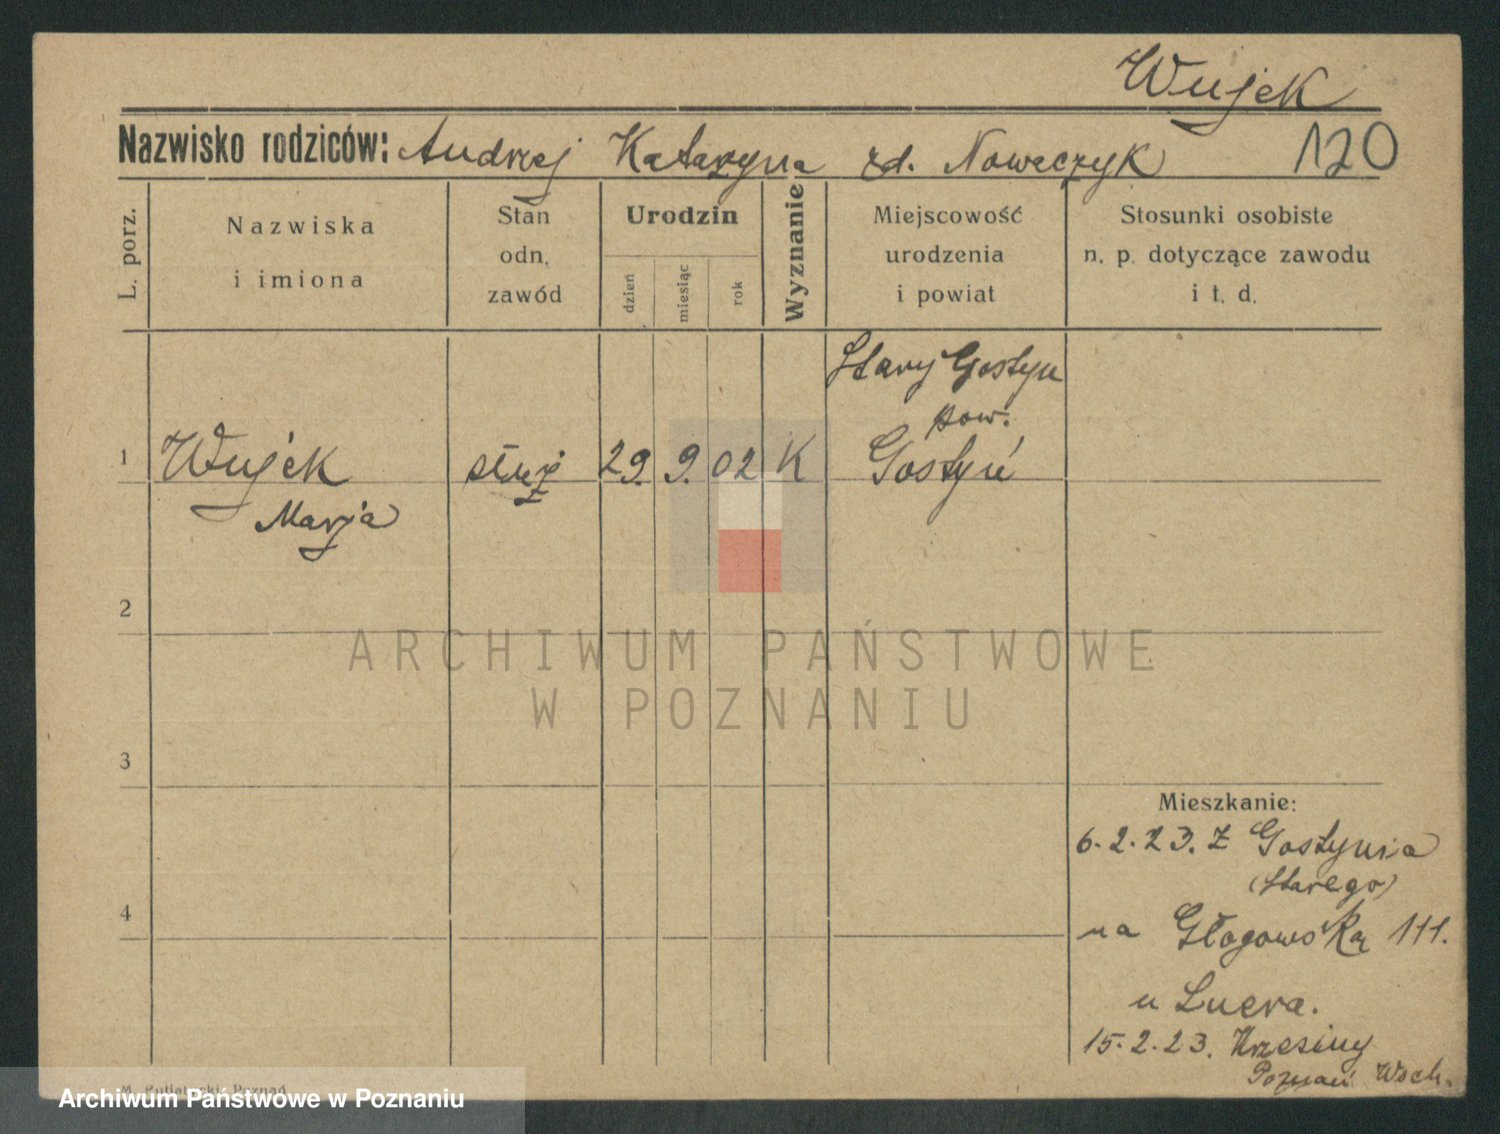 Wujek
Nazwisko rodziców: Andrzej Katarzyna zd. Noweczyk 120
L. porz.
Nazwiska i imiona
Stan odn. zawód
Urodzin
dzień
miesiąc
rok
Wyznanie
Miejscowość urodzenia i powiat
Stosunki osobiste n. p. dotyczące zawodu i t. d.
Stary Gostyń
pow.
1 Wujek służ 29. 9. 02 K Gostyń
Marja
2
ARCHIWUM PAŃSTWOWE
W POZNANIU
3
Mieszkanie:
6.2.23. z Gostynia
(Starego)
4
na Głogowską 111.
u Luera.
15.2.23. Krzesiny
Poznań Wsch.
Archiwum Państwowe w Poznaniu